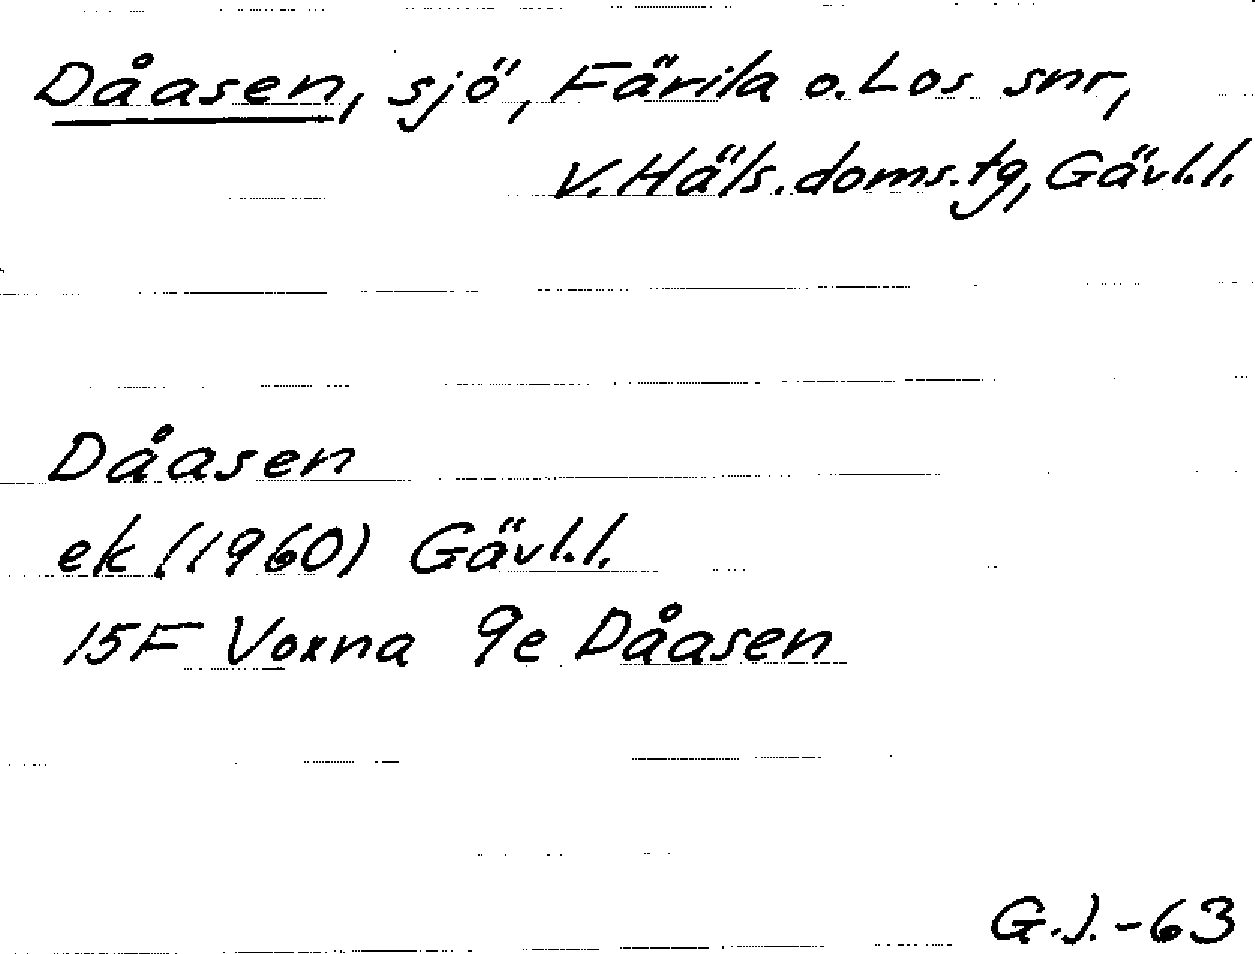 Dåasen, sjö, Färila o. Los snr,
v. Häls. doms.tg, Gävl.l.
Dåasen
ek (1960) Gävl.l.
15F Voxna 9e Dåasen
G.J.-63